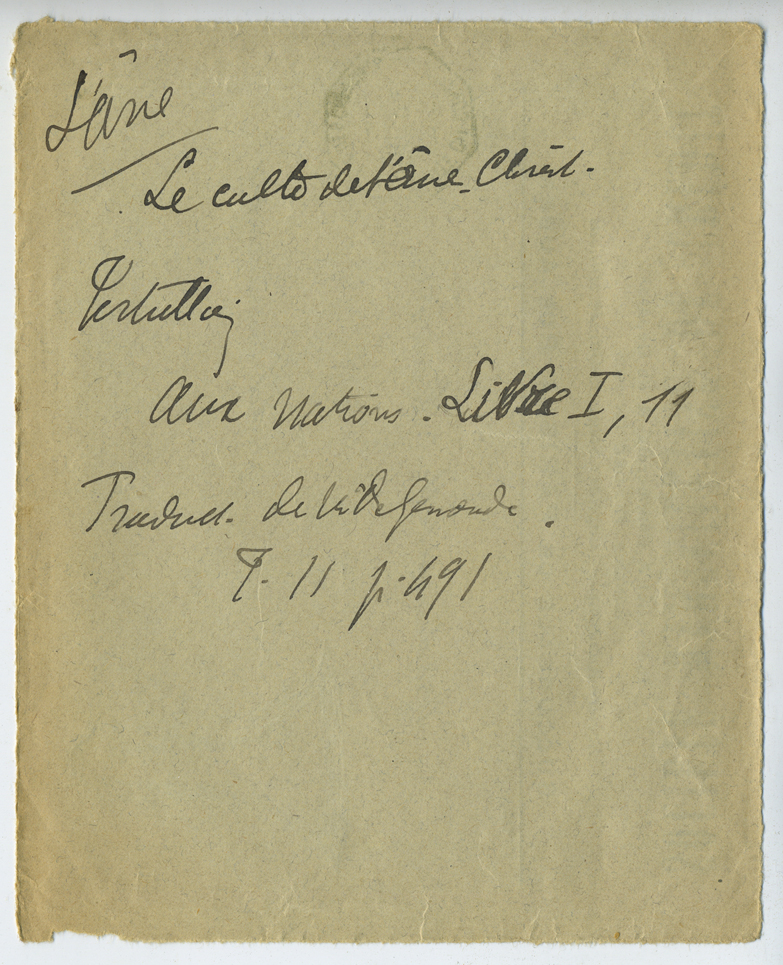 L'âne
Le culte de l'âne - Christ.
Tertullien
Aux Nations. Livre I, 11
Traduct. de M. de Genoude.
T. II p. 491